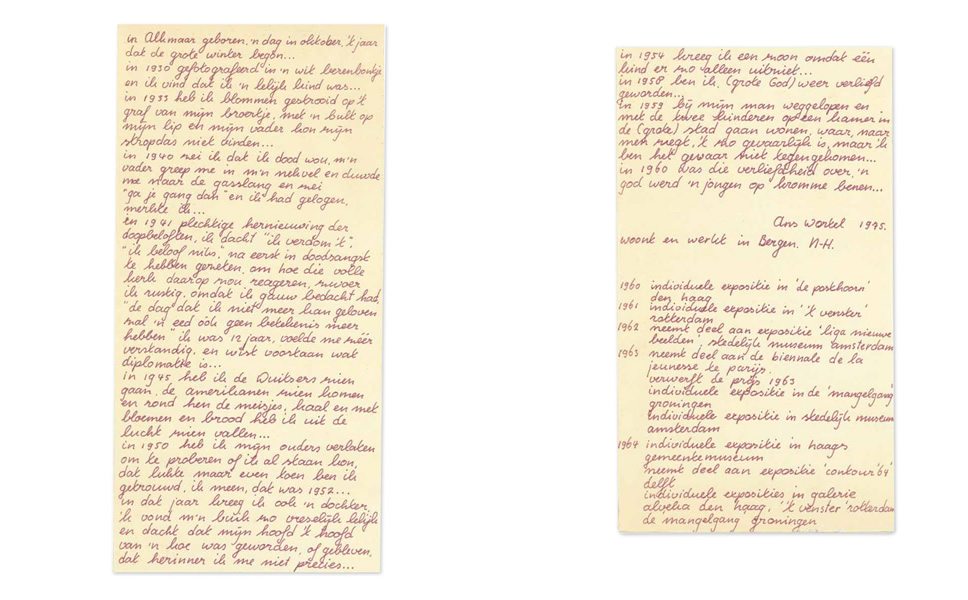 in Alkmaar geboren, 'n dag in oktober, 't jaar
dat de grote winter begon...
in 1930 gefotografeerd in 'n wit berenbontje
en ik vind dat ik 'n lelijk kind was...
in 1933 heb ik bloemen gestrooid op 't
graf van mijn broertje, met 'n bult op
mijn lip en mijn vader kon mijn
stropdas niet vinden...
in 1940 zei ik dat ik dood wou, m'n
vader greep me in m'n nekvel en duwde
me naar de gasslang en zei
"ga je gang dan" en ik had gelogen,
merkte ik...
en 1941 plechtige hernieuwing der
doopbeloften, ik dacht "ik verdom 't",
"ik beloof niks", na eerst in doodsangst
te hebben gezeten, om hoe die volle
kerk daarop zou reageren, zwoer
ik rustig, omdat ik gauw bedacht had
"de dag dat ik niet meer kan geloven
zal 'n eed óók geen betekenis meer
hebben" ik was 12 jaar, voelde me zéér
verstandig, en wist voortaan wat
diplomatie is...
in 1945 heb ik de Duitsers zien
gaan, de amerikanen zien komen
en rond hen de meisjes, kaal en met
bloemen en brood heb ik uit de
lucht zien vallen...
in 1950 heb ik mijn ouders verlaten
om te proberen of ik al staan kon,
dat lukte maar even toen ben ik
getrouwd, ik meen, dat was 1952...
in dat jaar kreeg ik ook 'n dochter,
'k vond m'n buik zo vreselijk lelijk
en dacht dat mijn hoofd 't hoofd
van 'n koe was geworden, of gebleven,
dat herinner ik me niet precies...
in 1954 kreeg ik een zoon omdat één
kind er zo alleen uitziet...
in 1958 ben ik, (grote God) weer verliefd
geworden...
in 1959 bij mijn man weggelopen en
met de twee kinderen op een kamer in
de (grote) stad gaan wonen, waar, naar
men zegt, 't zo gevaarlijk is, maar 'k
ben het gevaar niet tegengekomen...
in 1960 was die verliefdheid over, 'n
god werd 'n jongen op kromme benen...
Ans Wortel 1975.
woont en werkt in Bergen. N-H.
1960 individuele expositie in 'de posthoorn'
den haag
1961 individuele expositie in ''t venster'
rotterdam
1962 neemt deel aan expositie 'liga nieuwe
beelden', stedelijk museum amsterdam
1963 neemt deel aan de biennale de la
jeunesse te parijs.
verwerft de prijs 1963
individuele expositie in de 'mangelgang'
groningen
individuele expositie in stedelijk museum
amsterdam
1964 individuele expositie in haags
gemeentemuseum
neemt deel aan expositie 'contour '64'
delft
individuele exposities in galerie
alveka den haag, 't venster 'rotterdam
de mangelgang groningen